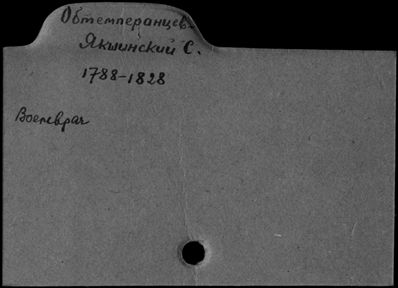 Обтемперанцев-
Якшинский С.
1788-1828
Военврач